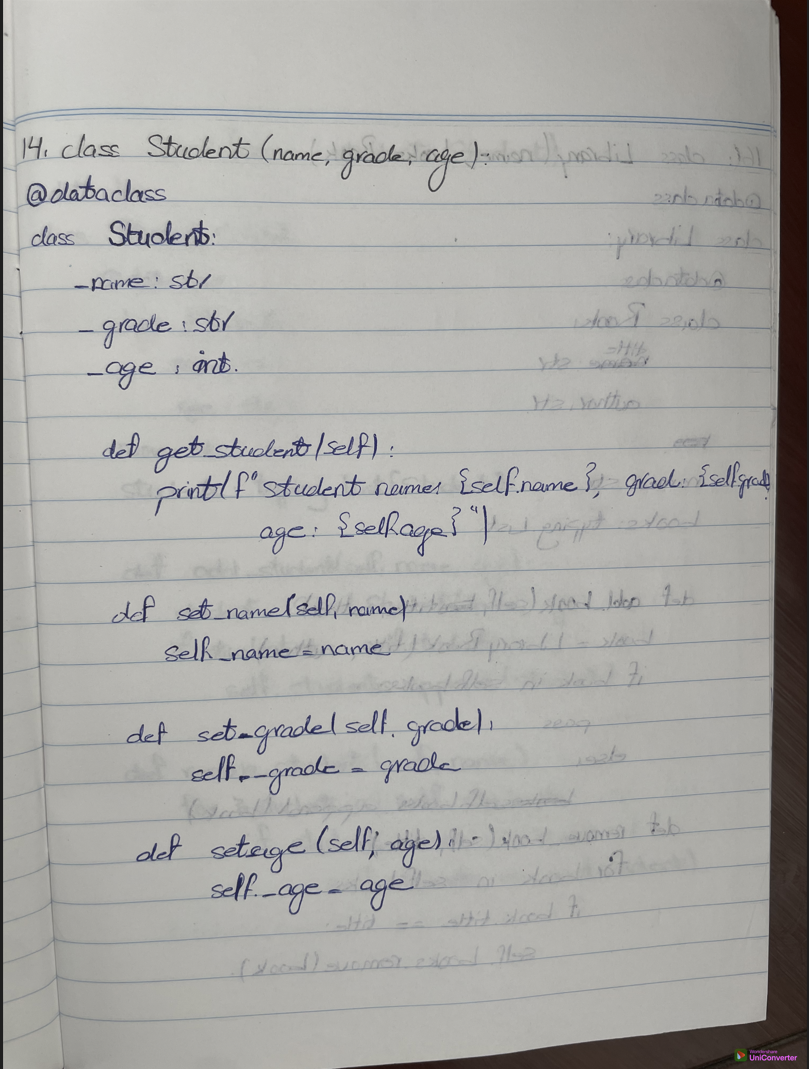 14. class Student (name, grade, age):
@dataclass
class Student:
_name: str
_grade: str
_age: int.
def get_student(self):
print(f" student name: {self.name}, grad: {self.grad
age: {self.age}")
def set_name(self, name)
self._name = name
def set_grade(self, grade):
self._grade = grade
def setage (self, age):
self._age = age
UniConverter